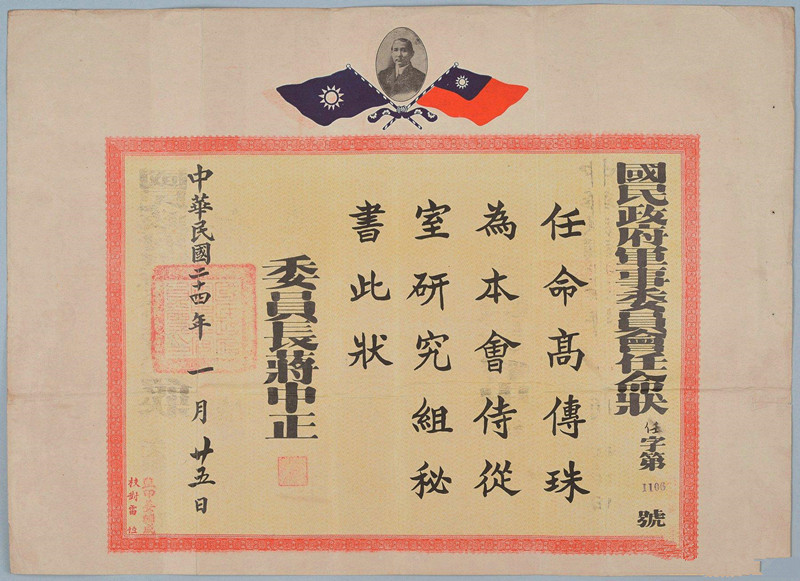 國民政府軍事委員會任命狀
任字第1106號
任命高傳珠
為本會侍從
室研究組秘
書此狀
委員長蔣中正
中華民國二十四年一月廿五日
校對